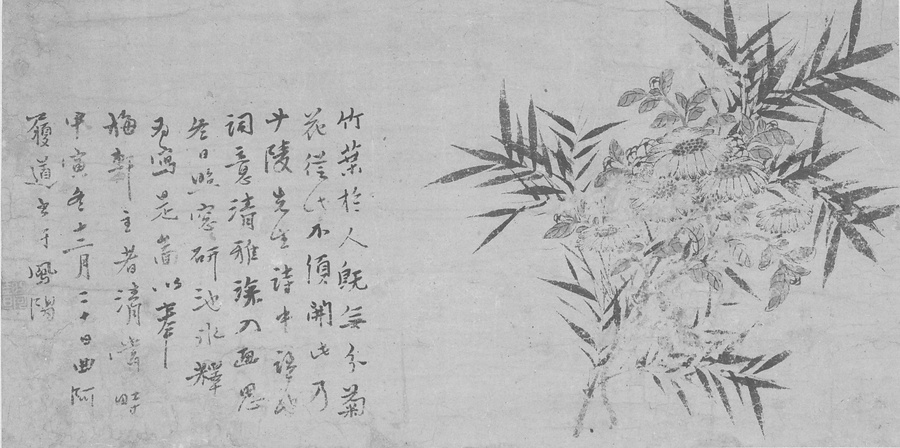 竹葉於人既無分菊
花從此不須開此乃
少陵先生詩中語也
詞意清雅深入畫思
冬日照窓研池冰釋
為寫是啚以奉
梅軒主者清賞時
甲寅冬十二月二十日曲阿
履道書于鳳陽